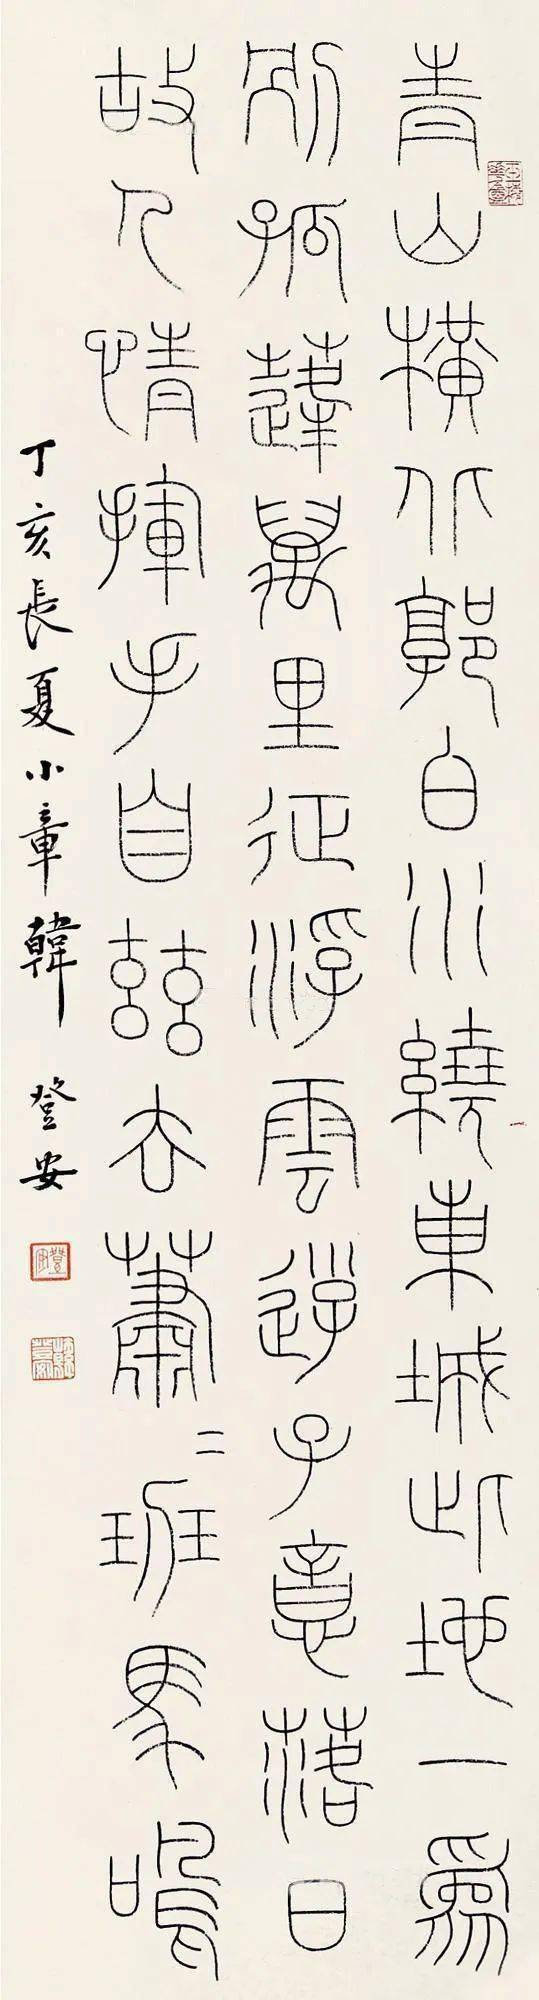 青山橫北郭白水繞東城此地一爲
別孤蓬萬里征浮雲遊子意落日
故人情揮手自茲去蕭〻班馬鳴
丁亥長夏小章韓登安
登安